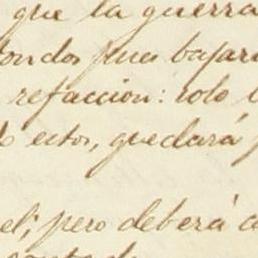 que la guerra
ondos pues bajar
refaccion: solo
ectos, quedará
el; pero deberá